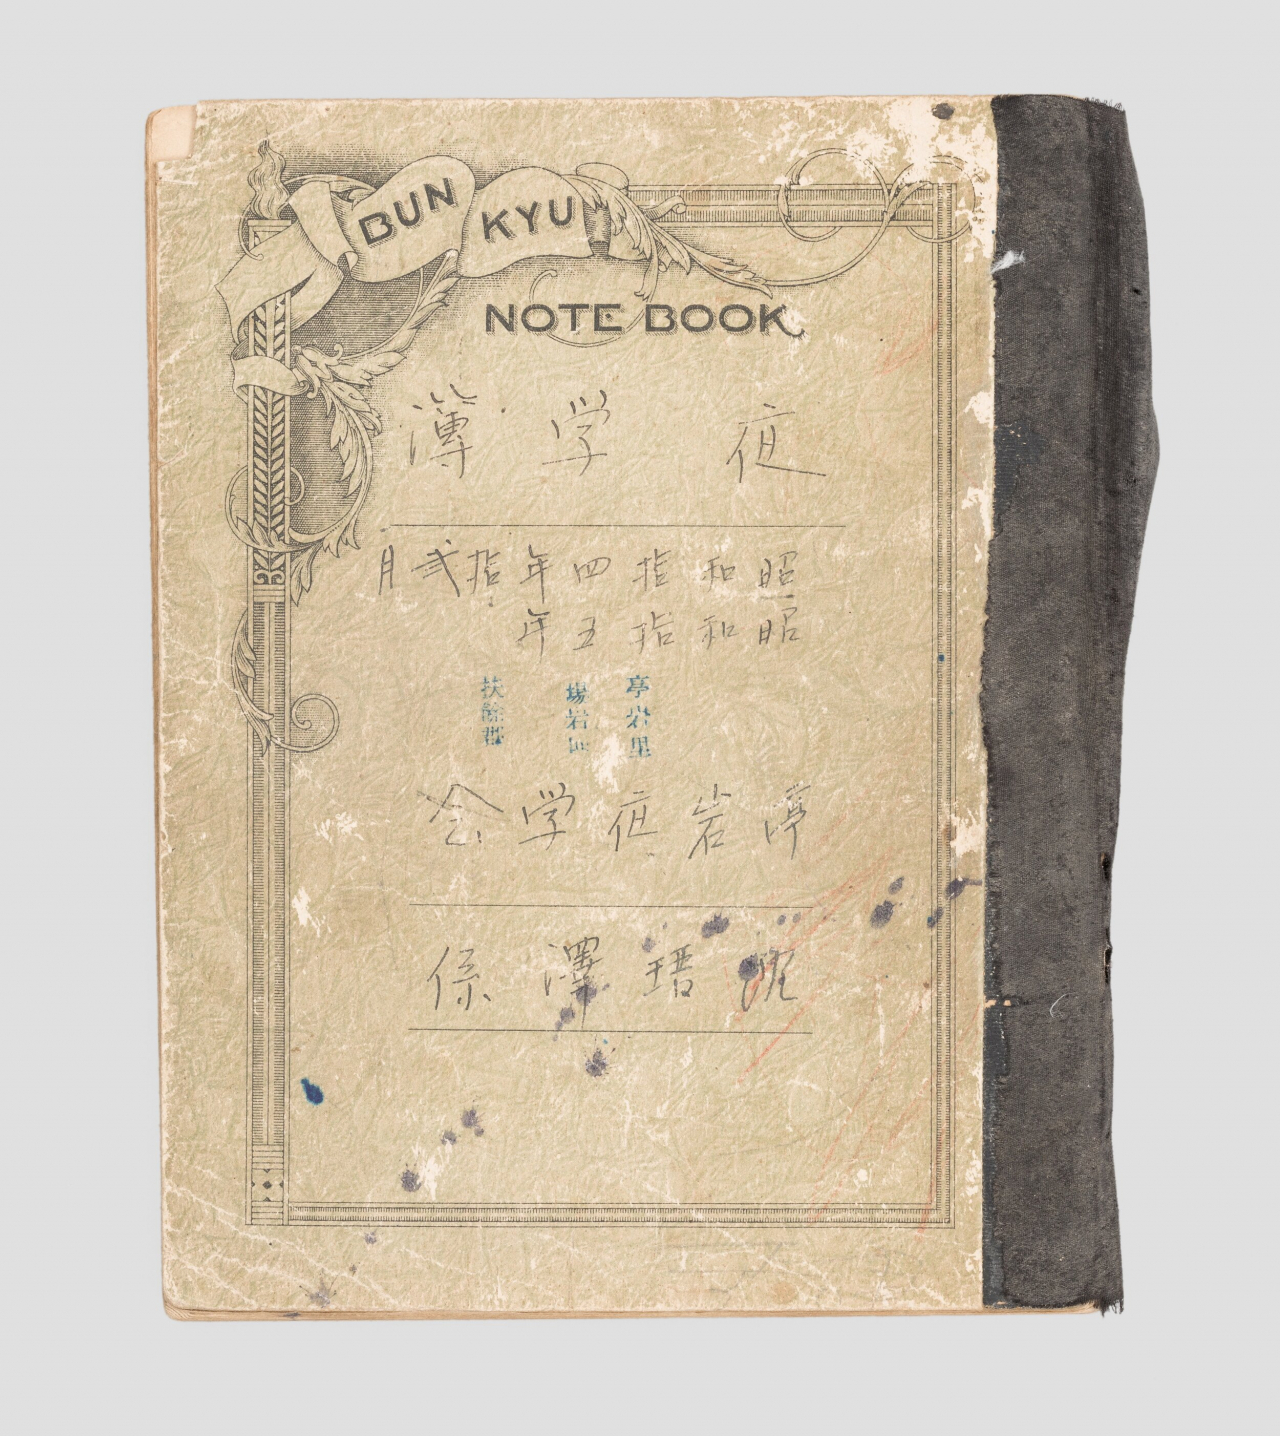 BUN KYU
NOTE BOOK
夜学簿
昭和拾四年拾弐月
昭和拾五年
亭岩里
場岩面
扶餘郡
亭岩夜学会
沈瑨澤係